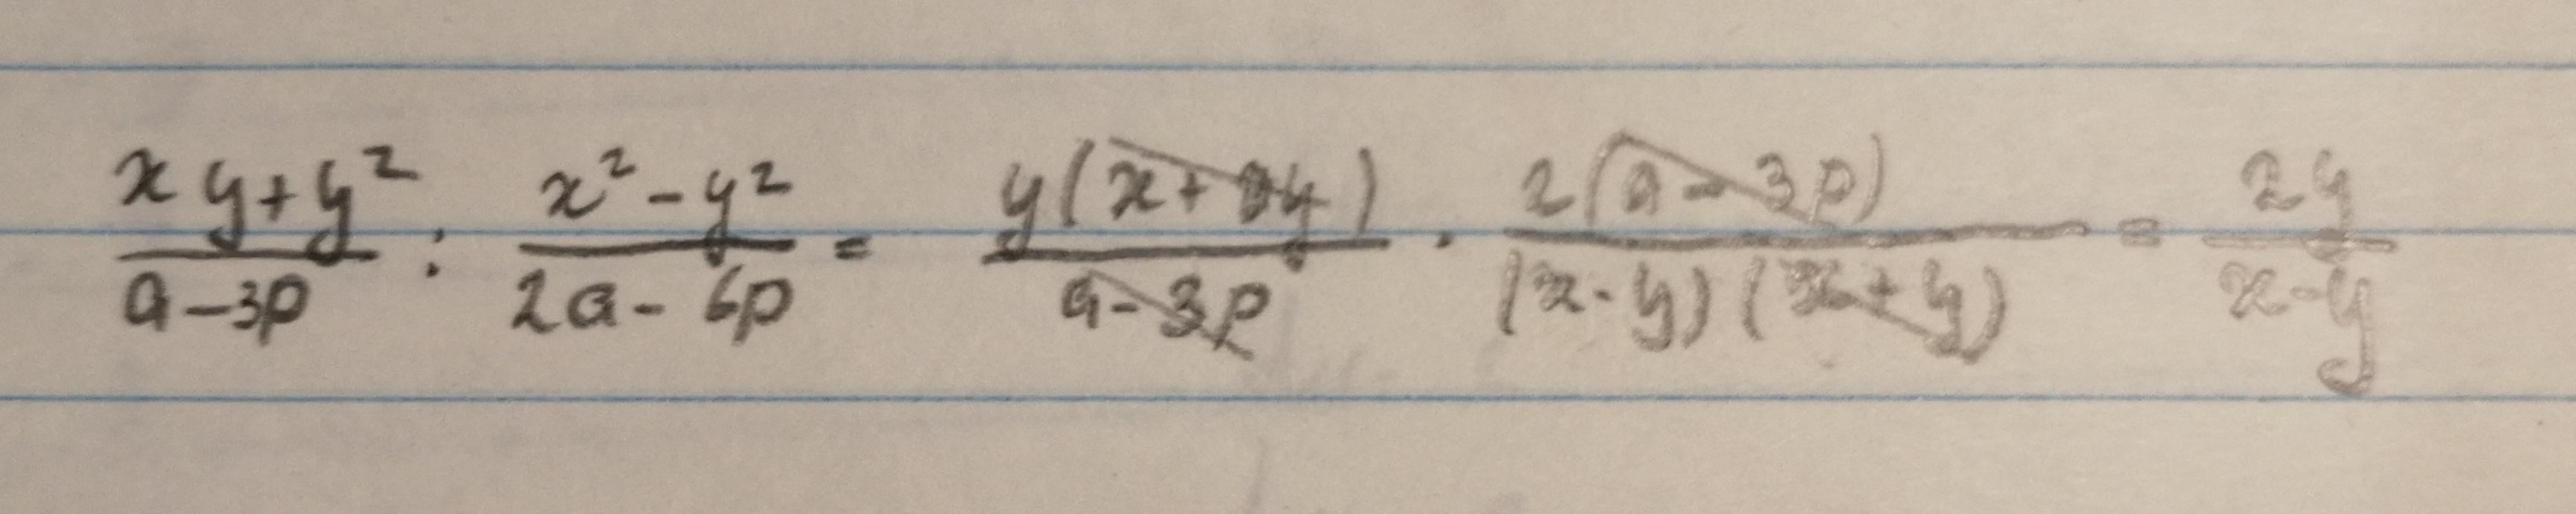 (xy+y²)/(a-3p) : (x²-y²)/(2a-6p) = y(x+y)/(a-3p) · 2(a-3p)/((x-y)(x+y)) = 2y/(x-y)